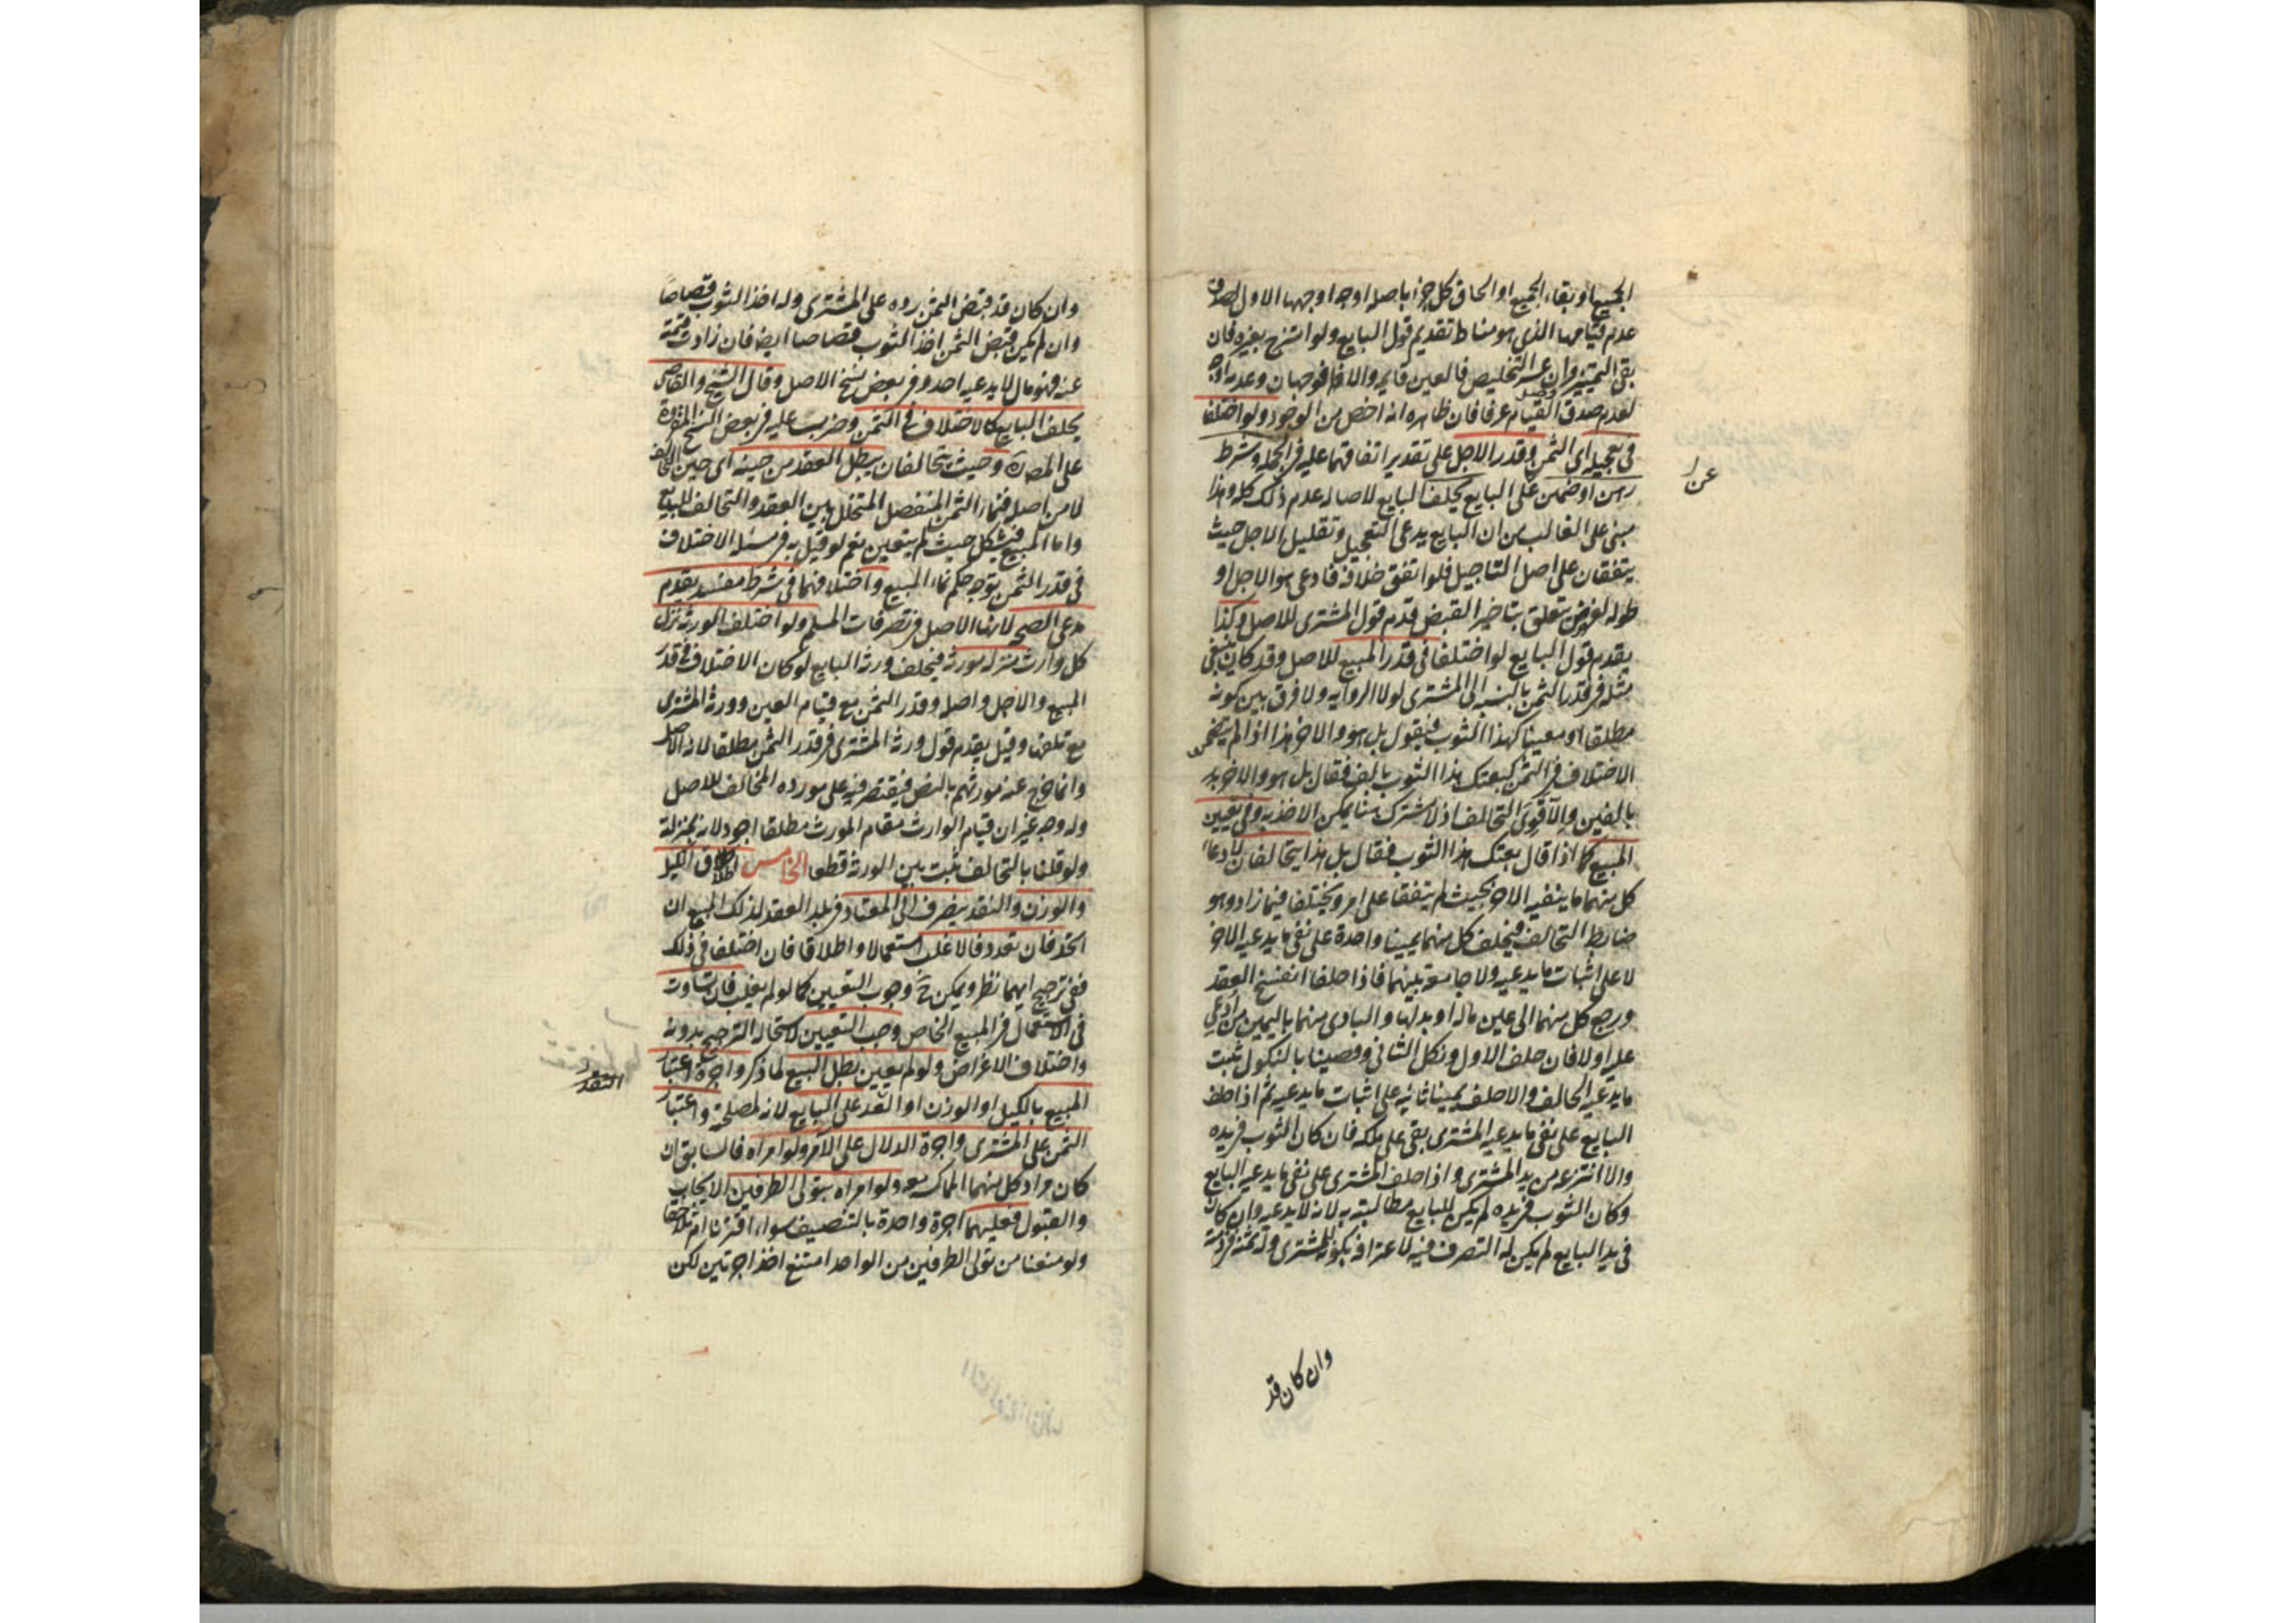 المبيع او بقاء الجميع او الحاق كل جزء باصله اوجه اوجهها الاول لصدق
عدم قيامها الذي هو مناط تقديم قول البايع ولو امتزج بغيره فان
بقي التمييز وان عسر التخليص فالعين قايمة والا فوجهان وعدمه اوجه
لعدم صدق القيام عرفا فان ظاهره انه اخص من الوجود ولو اختلفا
في تعجيله اي الثمن وقدر الاجل على تقدير اتفاقهما عليه في الجملة وشرط
رهن او ضمين عن البايع يحلف البايع لاصالة عدم ذلك كله وهذا
مبني على الغالب من ان البايع يدعي التعجيل وتقليل الاجل حيث
يتفقان على اصل التاجيل فلو اتفق خلافه فادعى هو الاجل او
طوله لغرض يتعلق بتاخير القبض قدم قول المشتري للاصل وكذا
يقدم قول البايع لو اختلفا في قدر المبيع للاصل وقد كان ينبغي
مثله في قدر الثمن بالنسبه الى المشتري لولا الروايه ولا فرق بين كونه
مطلقا او معينا كهذا الثوب فيقول بل هو والاخر هذا اذا لم يتضمن
الاختلاف في الثمن كبعتك هذا الثوب بالف فقال بل هو والاخر
بالفين والا قوى التحالف اذ لا مشترك هنا يمكن الاخذ به وفي تعيين
المبيع كما اذا قال بعتك هذا الثوب فقال بل هذا يتحالفان لادعاء
كل منهما ما ينفيه الاخر بحيث لم يتفقا على امر ويختلفا فيما زاد وهو
ضابط التحالف فيحلف كل منهما يمينا واحدة على نفي ما يدعيه الاخر
لا على اثبات ما يدعيه ولا جامعة بينهما فاذا حلفا انفسخ العقد
ورجع كل منهما الى عين ماله او بدلها والبادي منهما باليمين من ادعي
عليه اولا فان حلف الاول ونكل الثاني وقضينا بالنكول ثبت
ما يدعيه الحالف والا حلف يمينا ثانيه على اثبات ما يدعيه ثم اذا حلف
البايع على نفي ما يدعيه المشتري بقي على ملكه فان كان الثوب في يده
والا انتزعه من يد المشتري واذا حلف المشتري على نفي ما يدعيه البايع
وكان الثوب في يده لم يكن للبايع مطالبته به لانه لا يدعيه وان كان
في يد البايع لم يكن له التصرف فيه لاعترافه بكونه للمشتري وله ثمنه في ذمته
عن
وان كان قد
وان كان قد قبض الثمن رده على المشتري وله اخذ الثوب قصاصا
وان لم يكن قبض الثمن اخذ الثوب قصاصا ايضا فان زادت قيمته
عنه فهو مال لا يدعيه احد وفي بعض نسخ الاصل وقال الشيخ والقاضي
يحلف البايع كالاختلاف في الثمن وضرب عليه في بعض النسخ المقروة
على المص ره وحيث يتحالفان يبطل العقد من حينه اي حين التحالف
لا من اصله فنماء الثمن المنفصل المتخلل بين العقد والتحالف للبايع
واما المبيع فيشكل حيث لم يتعين نعم لو قيل به في مسئله الاختلاف
في قدر الثمن توجه حكم نماء المبيع واختلافهما في شرط مفسد يقدم
مدعي الصحه لانها الاصل في تصرفات المسلم ولو اختلف الورثه نزل
كل وارث منزله مورثه فيحلف ورثة البايع لو كان الاختلاف في قدر
المبيع والاجل واصله وقدر الثمن مع قيام العين وورثة المشتري
مع تلفها وقيل يقدم قول ورثة المشتري في قدر الثمن مطلقا لانه الاصل
وانما خرج عنه مورثهم بالنص فيقتصر فيه على مورده المخالف للاصل
وله وجه غير ان قيام الوارث مقام المورث مطلقا اجود لانه بمنزلة
ولو قلنا بالتحالف ثبت بين الورثة قطعا الخامس اطلاق الكيل
والوزن والنقد ينصرف الى المعتاد في بلد العقد لذلك المبيع ان
اتحد فان تعدد فالاغلب استعمالا واطلاقا فان اختلفا في ذلك
ففي ترجيح ايهما نظر ويمكن ح وجوب التعيين كما لو لم يغلب فان تساوت
في الاستعمال في المبيع الخاص وجب التعيين لاستحالة الترجيح بدونه
واختلاف الاغراض ولو لم يعين بطل البيع لما ذكر واجرة اعتبار
المبيع بالكيل او الوزن او النقد على البايع لانه لمصلحته واعتبار
الثمن على المشتري واجرة الدلال على الامر ولو امراه فالسابق ان
كان مراد كل منهما المماكسه معه ولو امراه بتولي الطرفين الايجاب
والقبول فعليهما اجرة واحدة بالتنصيف سواء اقترنا ام تلاحقا
ولو منعنا من تولي الطرفين من الواحد امتنع اخذ اجرتين لكن
النقد